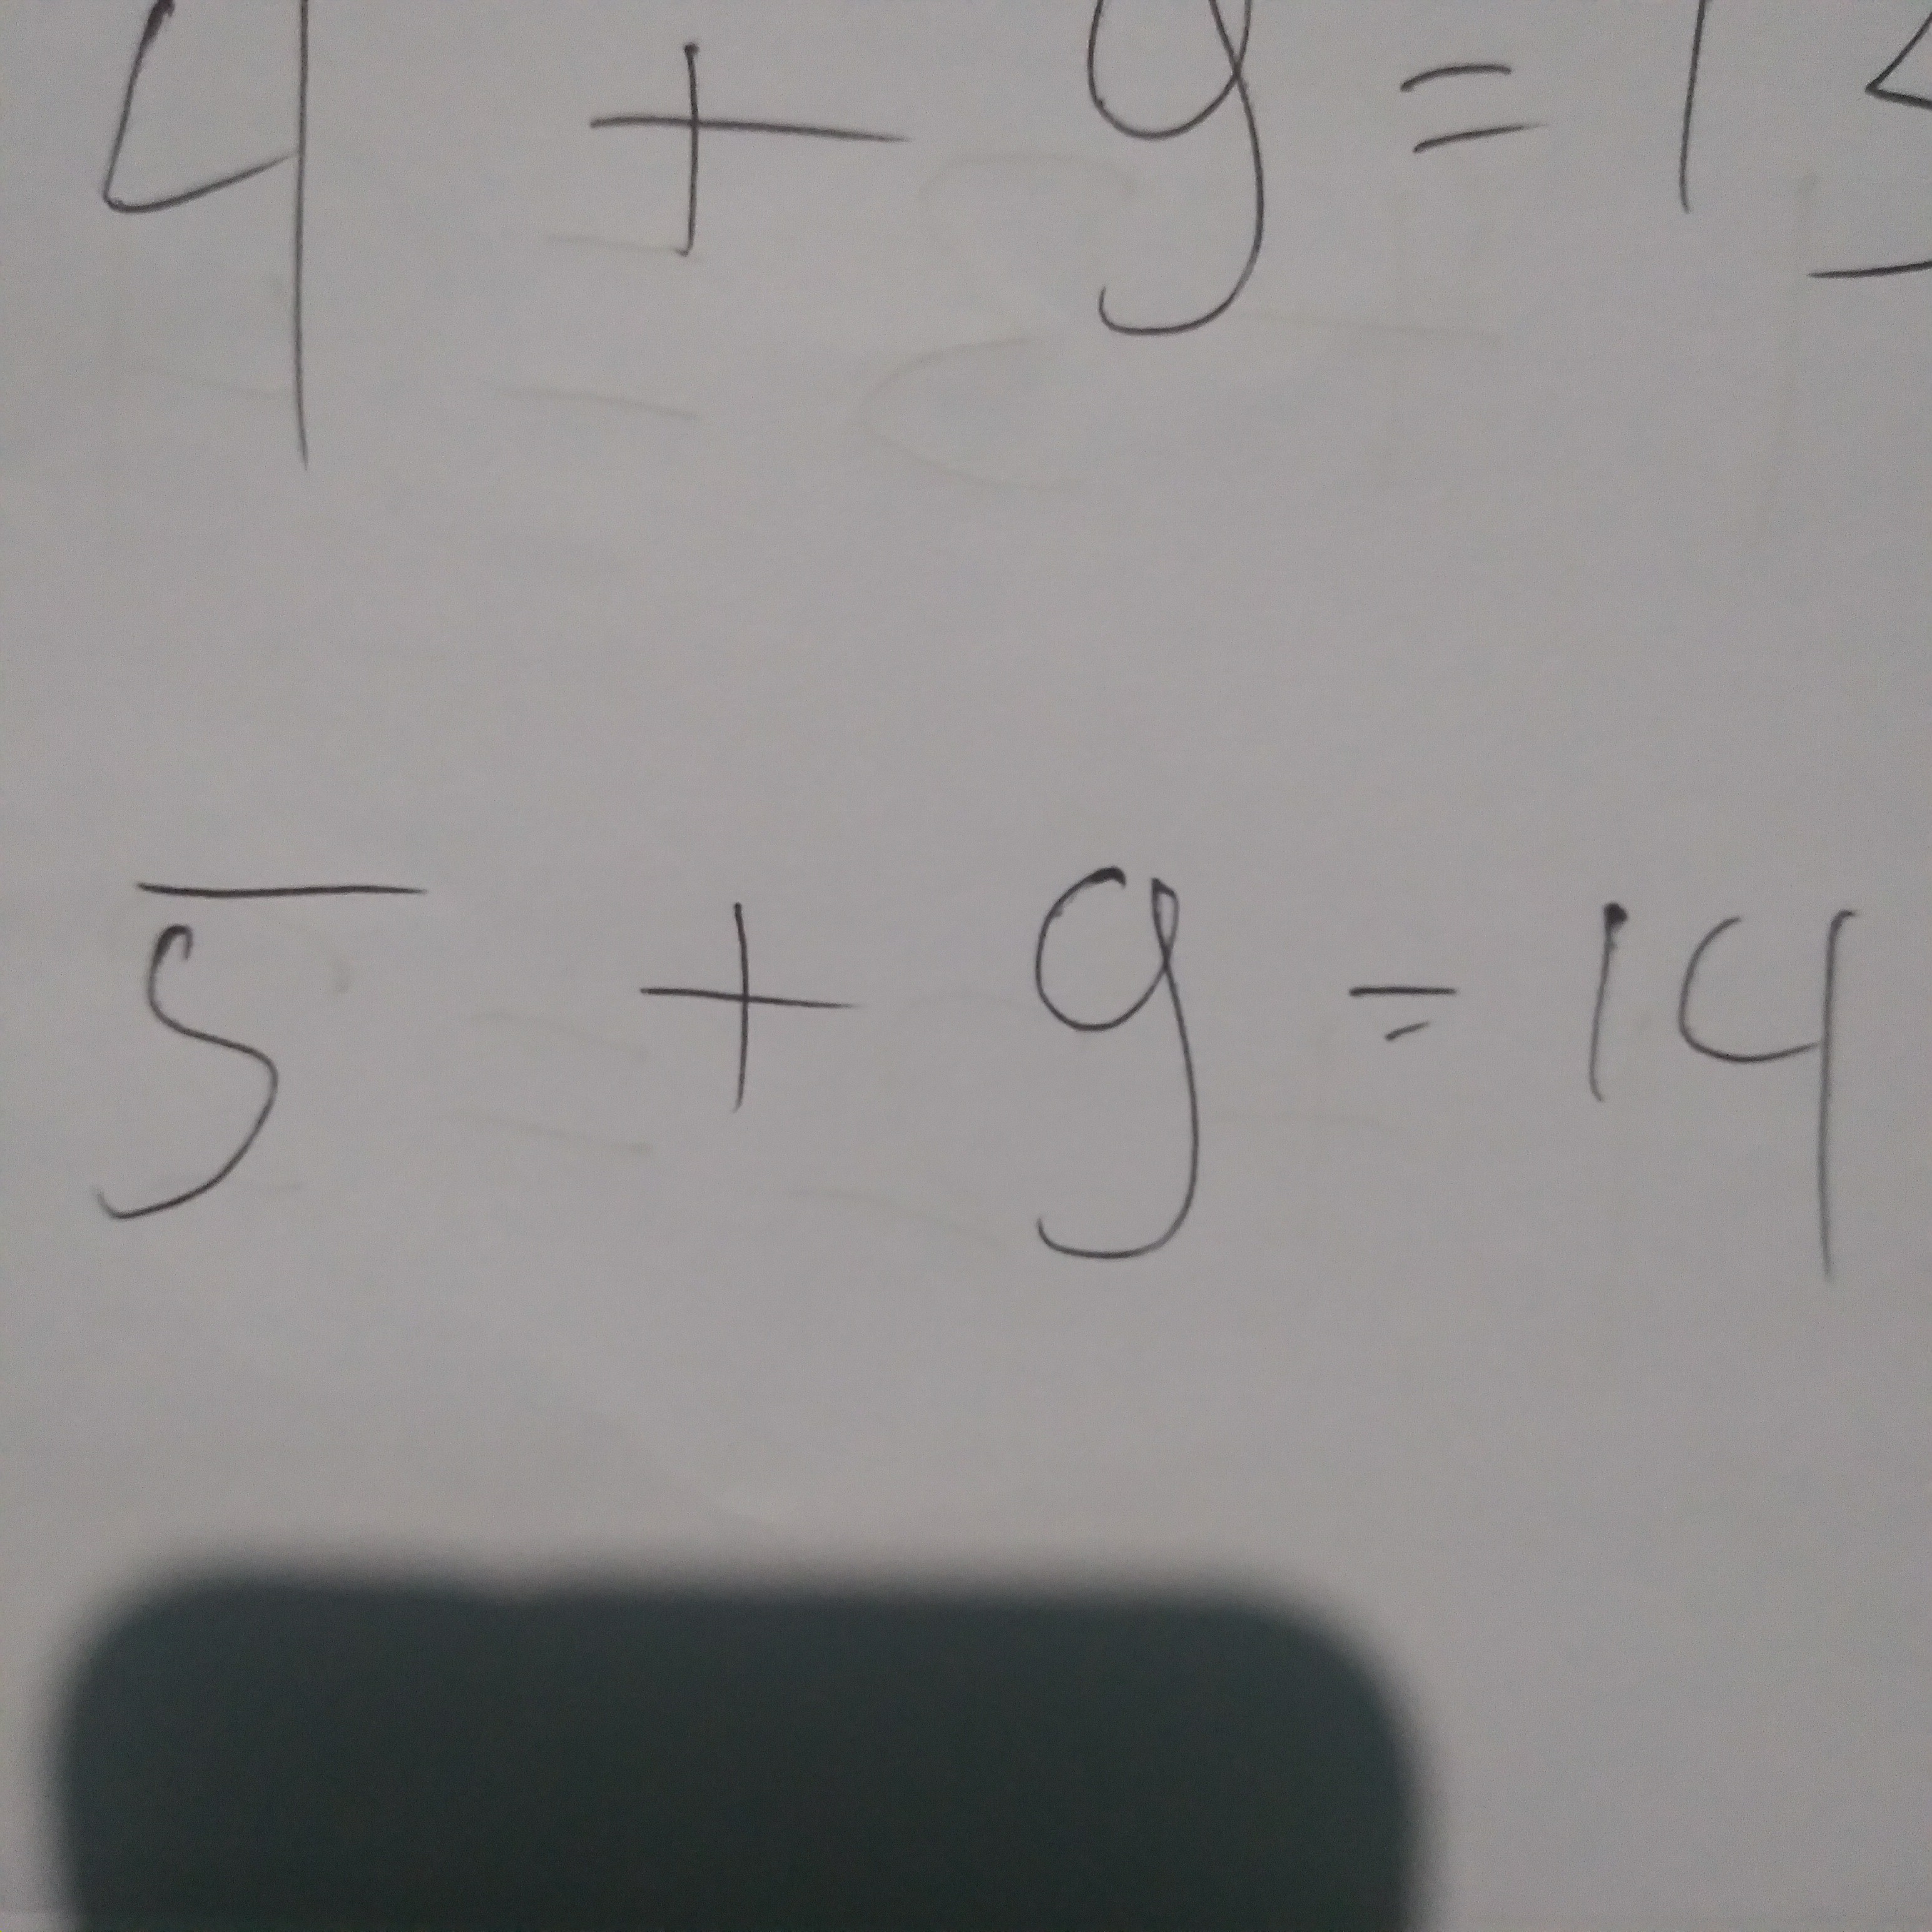 4 + 9 = 13
5 + 9 = 14